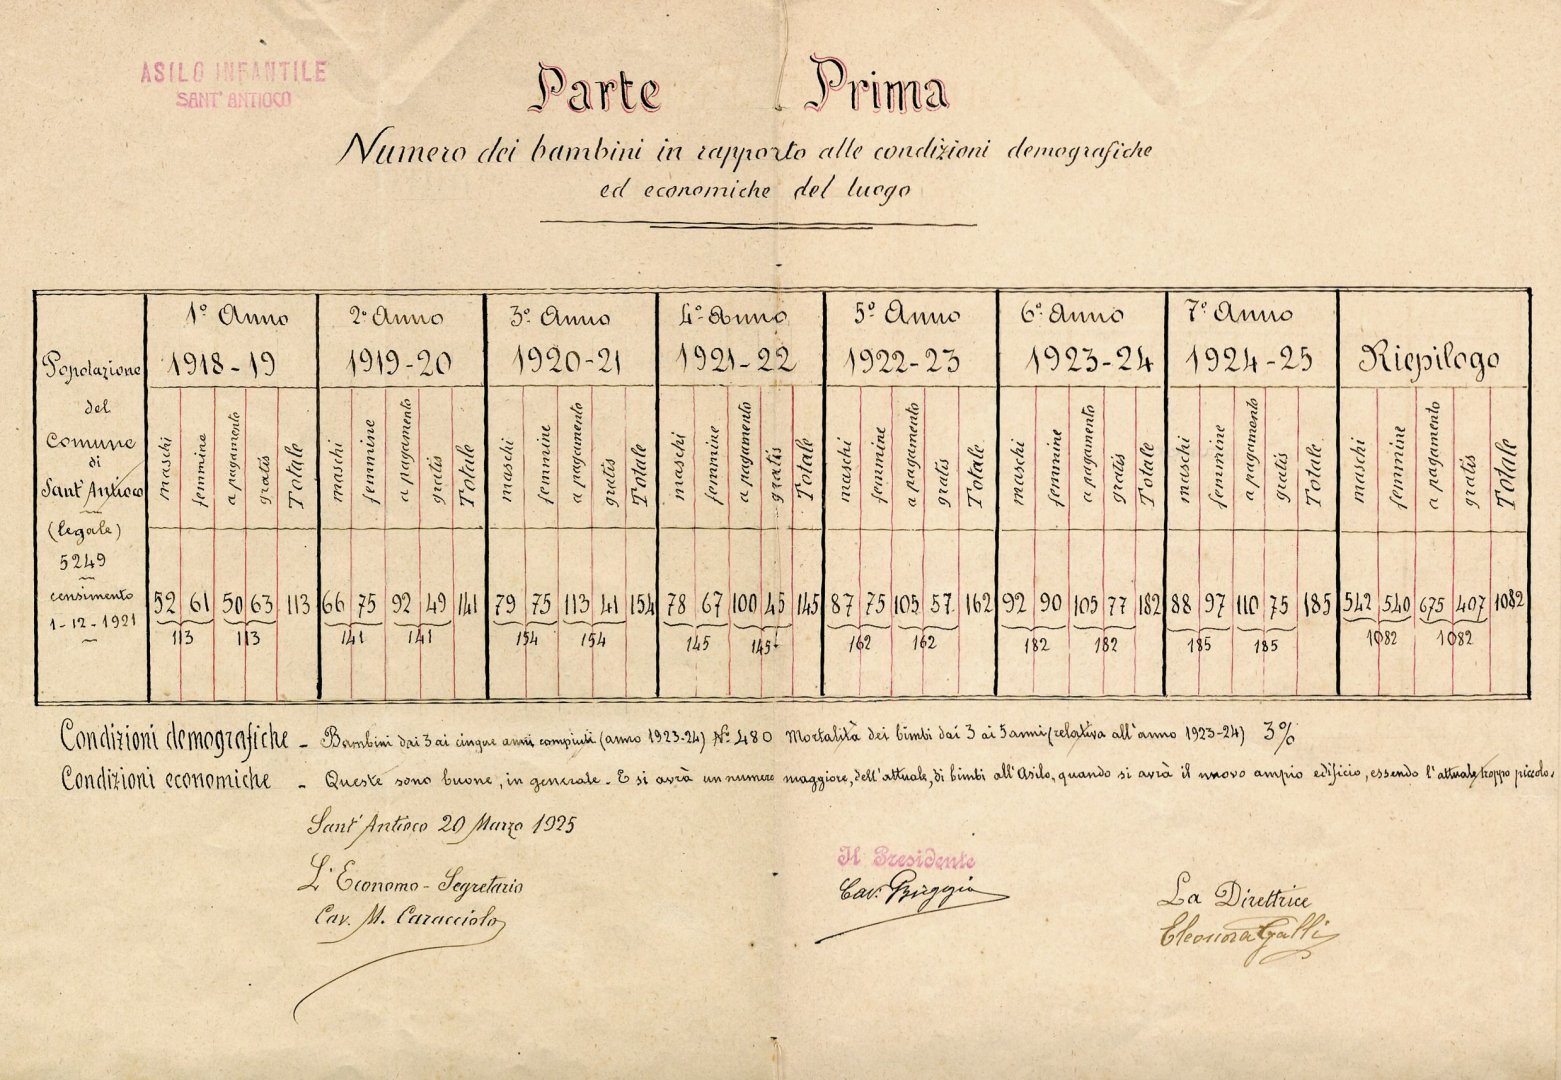 ASILO INFANTILE
SANT' ANTIOCO
Parte Prima
Numero dei bambini in rapporto alle condizioni demografiche
ed economiche del luogo
Popolazione
del
Comune
di
Sant'Antioco
(legale)
5249
censimento
1-12-1921
1º Anno
1918-19
maschi femmine a pagamento gratis Totale
52 61 50 63 113
113 113
2º Anno
1919-20
maschi femmine a pagamento gratis Totale
66 75 92 49 141
141 141
3º Anno
1920-21
maschi femmine a pagamento gratis Totale
79 75 113 41 154
154 154
4º Anno
1921-22
maschi femmine a pagamento gratis Totale
78 67 100 45 145
145 145
5º Anno
1922-23
maschi femmine a pagamento gratis Totale
87 75 105 57 162
162 162
6º Anno
1923-24
maschi femmine a pagamento gratis Totale
92 90 105 77 182
182 182
7º Anno
1924-25
maschi femmine a pagamento gratis Totale
88 97 110 75 185
185 185
Riepilogo
maschi femmine a pagamento gratis Totale
542 540 675 407 1082
1082 1082
Condizioni demografiche - Bambini dai 3 ai cinque anni compiuti (anno 1923-24) Nº 480 Mortalità dei bimbi dai 3 ai 5 anni (relativa all'anno 1923-24) 3%
Condizioni economiche - Queste sono buone, in generale. E si avrà un numero maggiore, dell'attuale, di bimbi all'Asilo, quando si avrà il nuovo ampio edificio, essendo l'attuale troppo piccolo.
Sant'Antioco 20 Marzo 1925
L'Economo-Segretario
Cav. M. Caracciolo
Il Presidente
Cav. Biggio
La Direttrice
Eleonora Galli